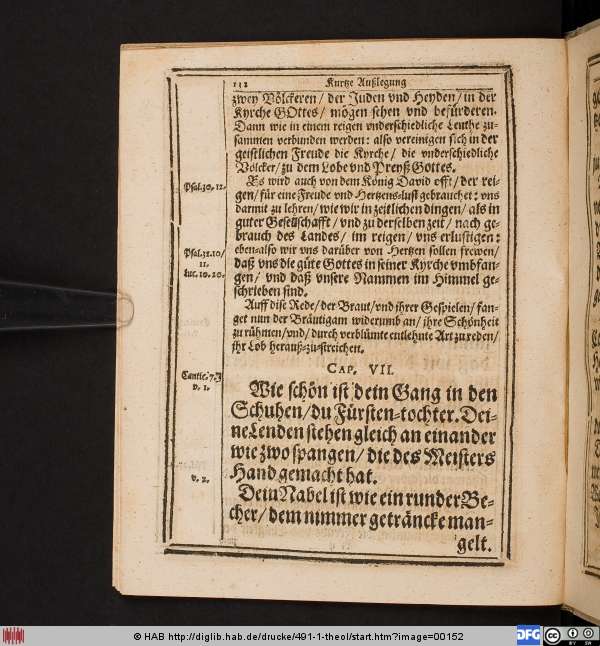 132 Kurtze Außlegung
zwey Völckeren/ der Juden vnd Heyden/ in der
Kyrche GOttes/ mögen sehen vnd befürderen.
Dann wie in einem reigen vnderschiedliche Leuthe zu-
sammen verbunden werden: also vereinigen sich in der
geistlichen Freude die Kyrche/ die vnderschiedliche
Völcker/ zu dem Lobe vnd Preyß Gottes.
Psal.30.12. Es wird auch von dem König David offt/ der rei-
gen/ für eine Freude vnd Hertzens-lust gebrauchet: vns
damit zu lehren/ wie wir in zeitlichen dingen/ als in
guter Gesellschafft/ vnd zu derselben zeit/ nach ge-
brauch des Landes/ im reigen/ vns erlustigen:
Psal.32.10/ eben-also wir vns darüber von Hertzen sollen frewen/
11. daß vns die güte Gottes in seiner Kyrche vmbfan-
Luc.10.20. gen/ vnd daß vnsere Nammen im Himmel ge-
schrieben sind.
Auff dise Rede/ der Braut/ vnd jhrer Gespielen/ fan-
get nun der Bräutigam widerumb an/ jhre Schönheit
zu rühmen/ vnd/ durch verblümte entlehnte Art zu reden/
jhr Lob herauß-zu-streichen.
CAP. VII.
Cantic.7. Wie schön ist dein Gang in den
v. 1. Schuhen/ du Fürsten-tochter. Dei-
ne Lenden stehen gleich an einander
wie zwo spangen/ die des Meisters
Hand gemacht hat.
v. 2. Dein Nabel ist wie ein runder Be-
cher/ dem nimmer geträncke man-
gelt.
© HAB http://diglib.hab.de/drucke/491-1-theol/start.htm?image=00152
DFG
cc
BY SA